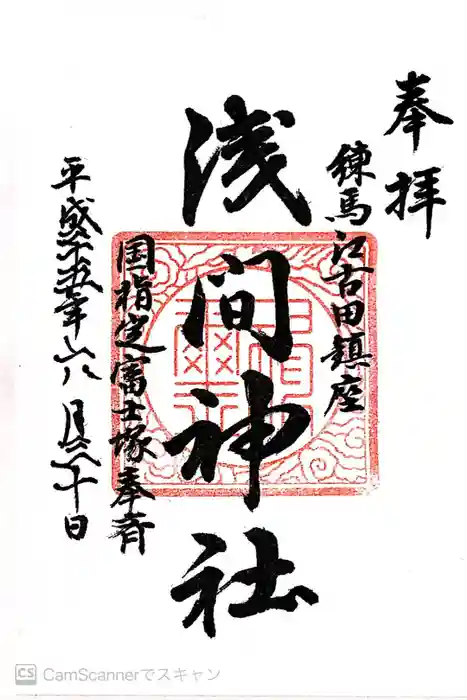 奉拝
練馬江古田鎮座
浅間神社
国指定富士塚奉斎
平成
年六月二十日
CS CamScannerでスキャン